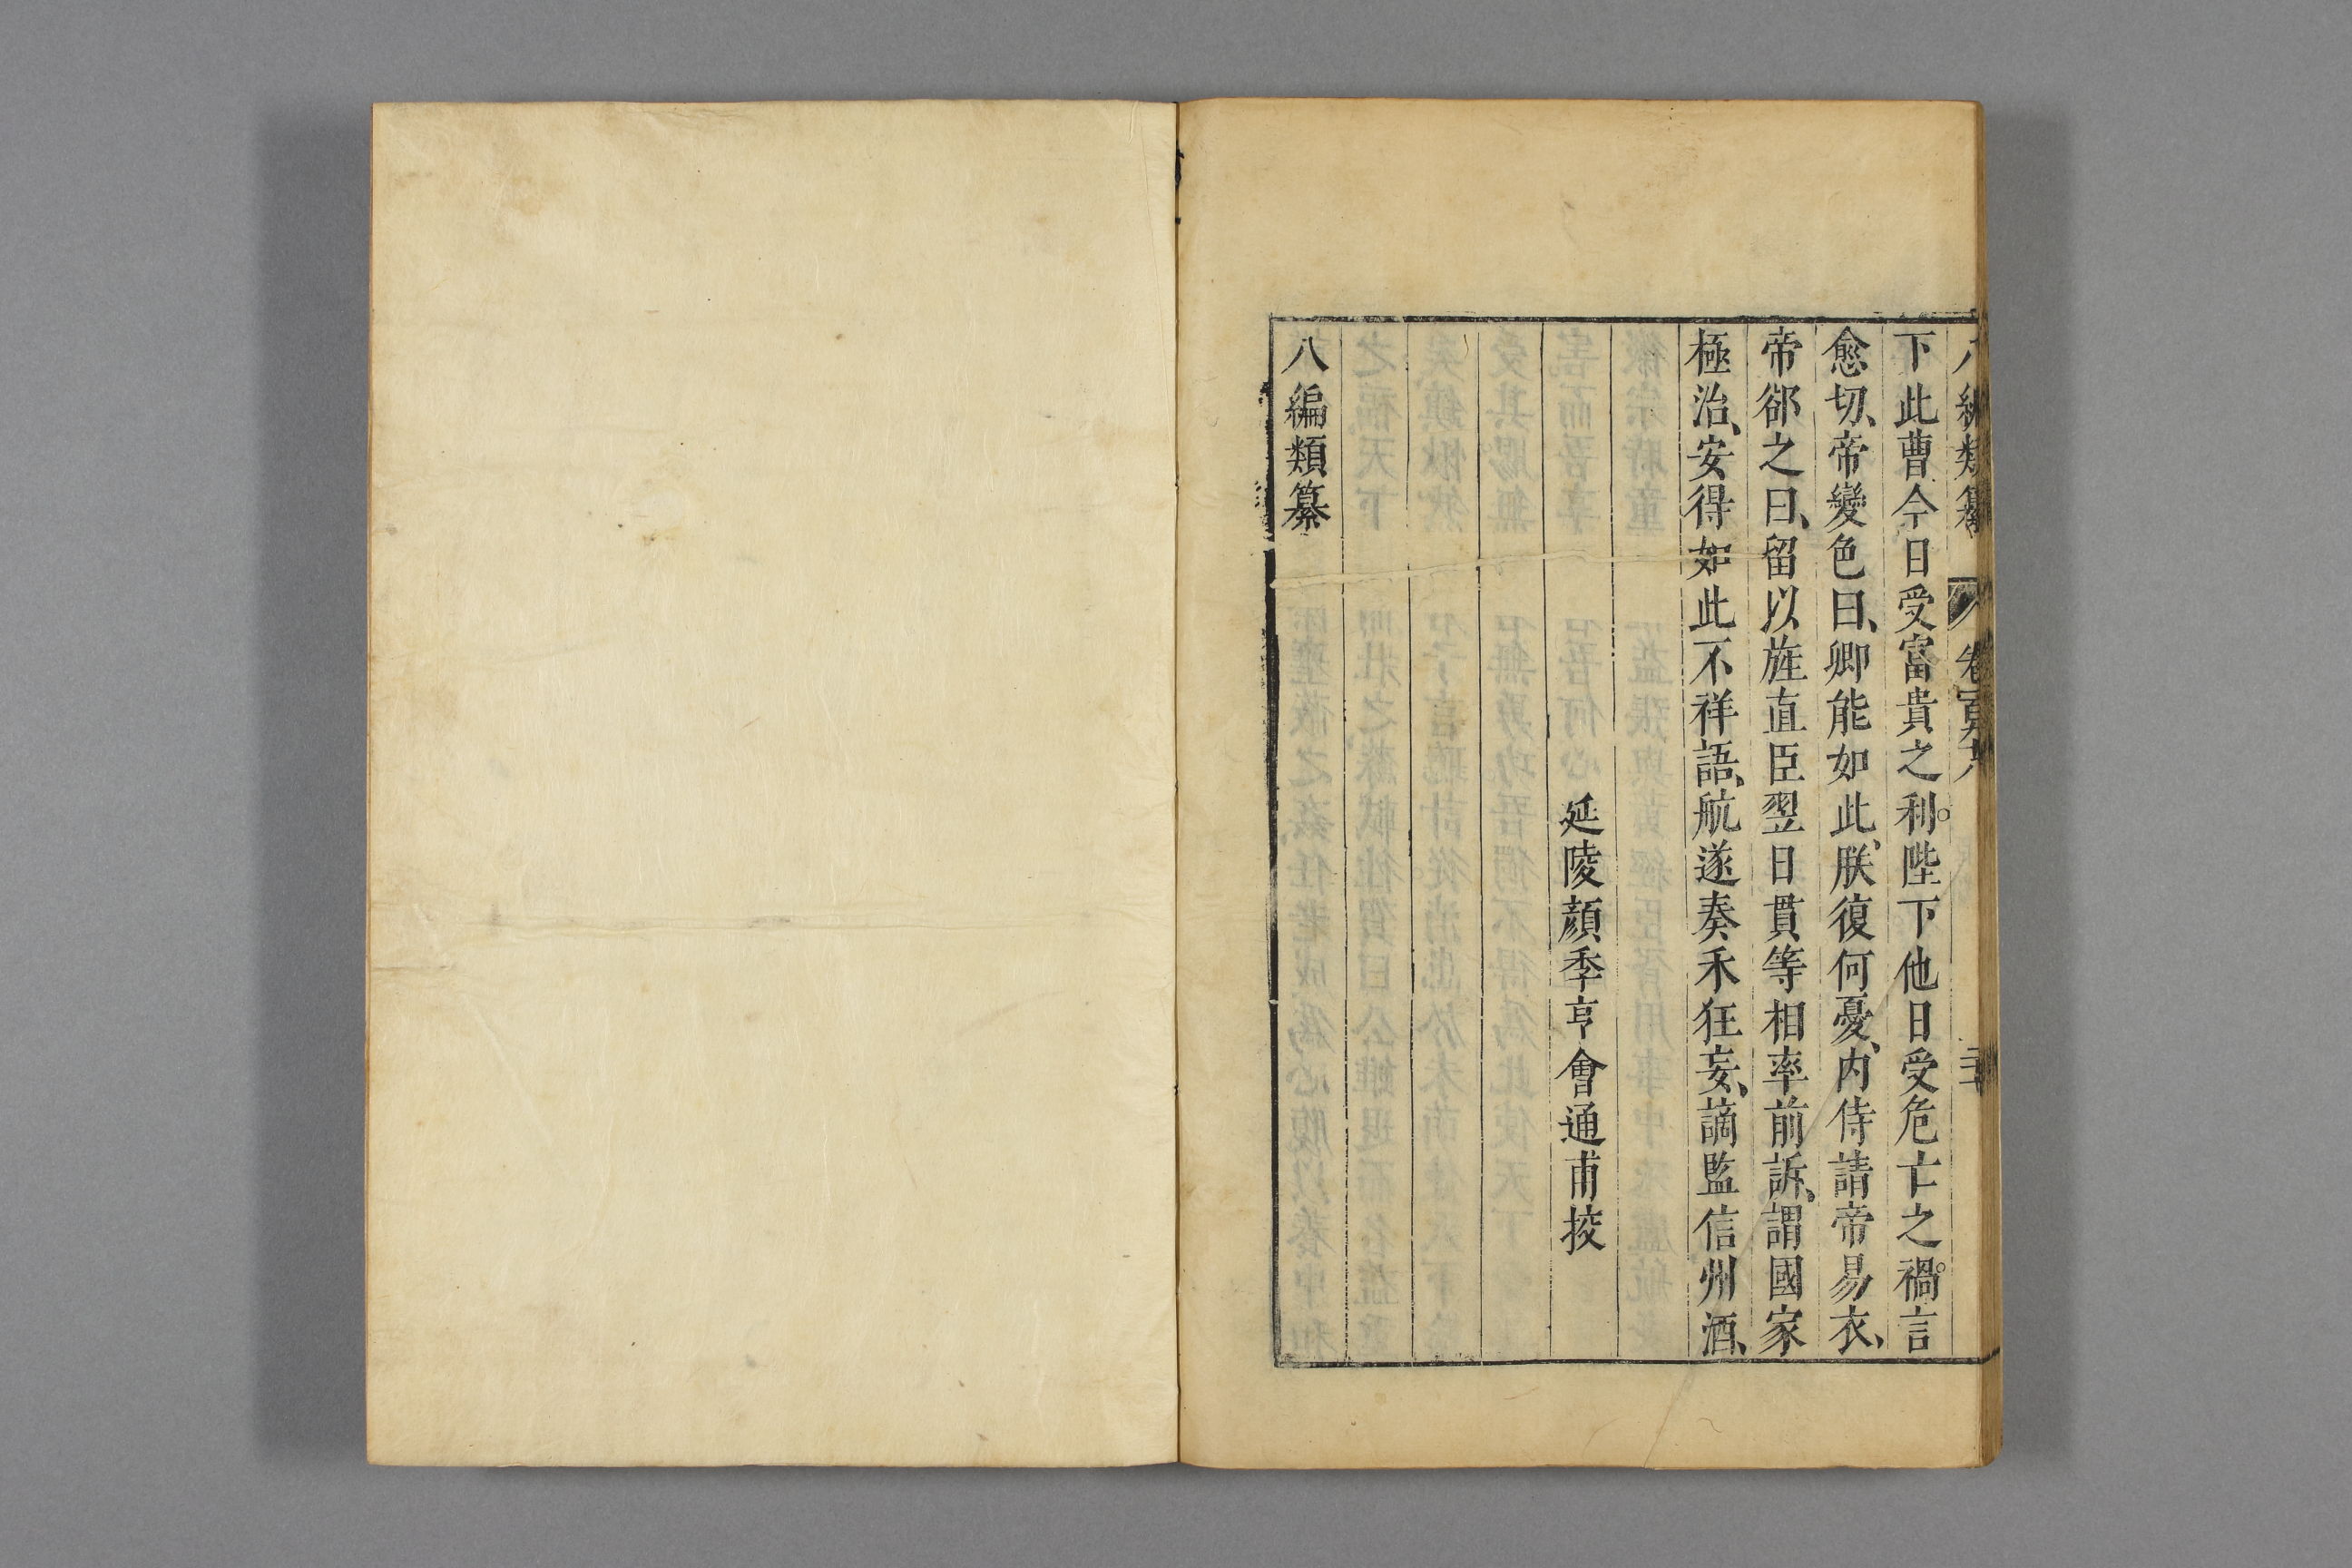 八編類纂 卷百六
下此曹今日受富貴之利。陛下他日受危亡之禍。言
愈切、帝變色曰、卿能如此、朕復何憂、内侍請帝易衣、
帝郤之曰、留以旌直臣翌日貫等相率前訴、謂國家
極治、安得如此不祥語、航遂奏禾狂妄、謫監信州酒、
延陵顔季亨會通甫挍
八編類纂